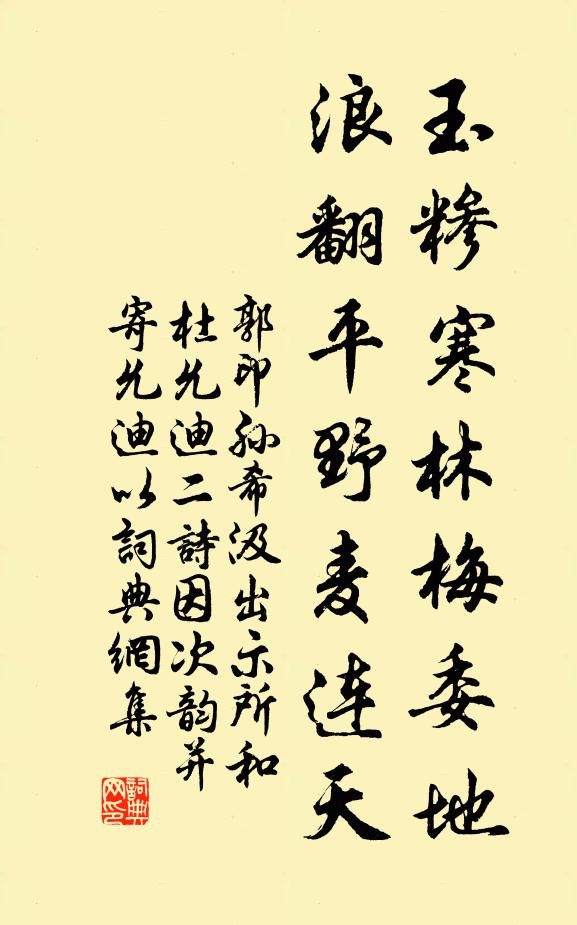 玉糁寒林梅委地
浪翻平野麦连天
郭印孙希汲出示所和
杜允迪二詩因次韵并
寄允迪以詞典網集
詞典
网印